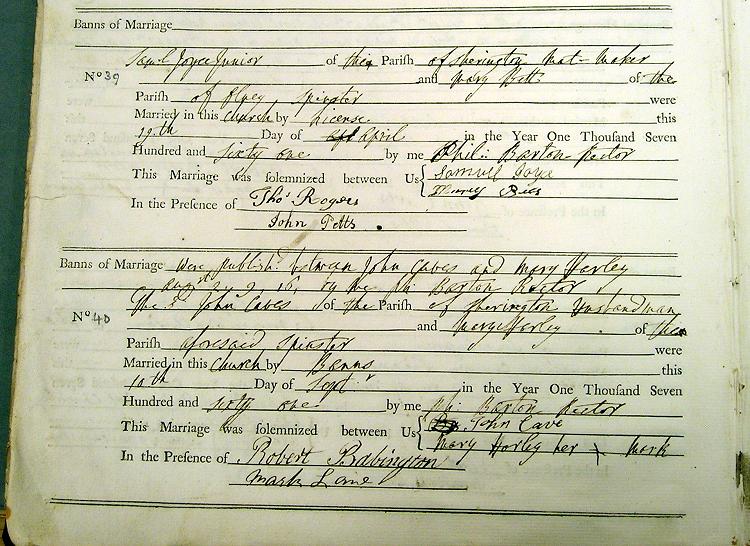 Banns of Marriage
Saml Joyce Junior of this Parish of Sherington Mat-Maker
No 39 and Mary Bett of the
Parish of Olney, Spinster were
Married in this Church by License this
19th Day of April in the Year One Thousand Seven
Hundred and Sixty one by me Phil: Barton Rector
This Marriage was solemnized between Us Samuel Joyce
In the Presence of Thos Rogers
John Petts
Banns of Marriage were publish between John Caves and Mary Harley
by me Phi Barton Rector
The sd John Caves of the Parish of Sherington
No 40 and Mary Harley of the
Parish aforesaid Spinster were
Married in this Church by Banns this
10th Day of Sept in the Year One Thousand Seven
Hundred and sixty one by me Phi Barton Rector
This Marriage was solemnized between Us John Cave
Mary Harley her + Mark
In the Presence of Robert Babington
Mark Lane